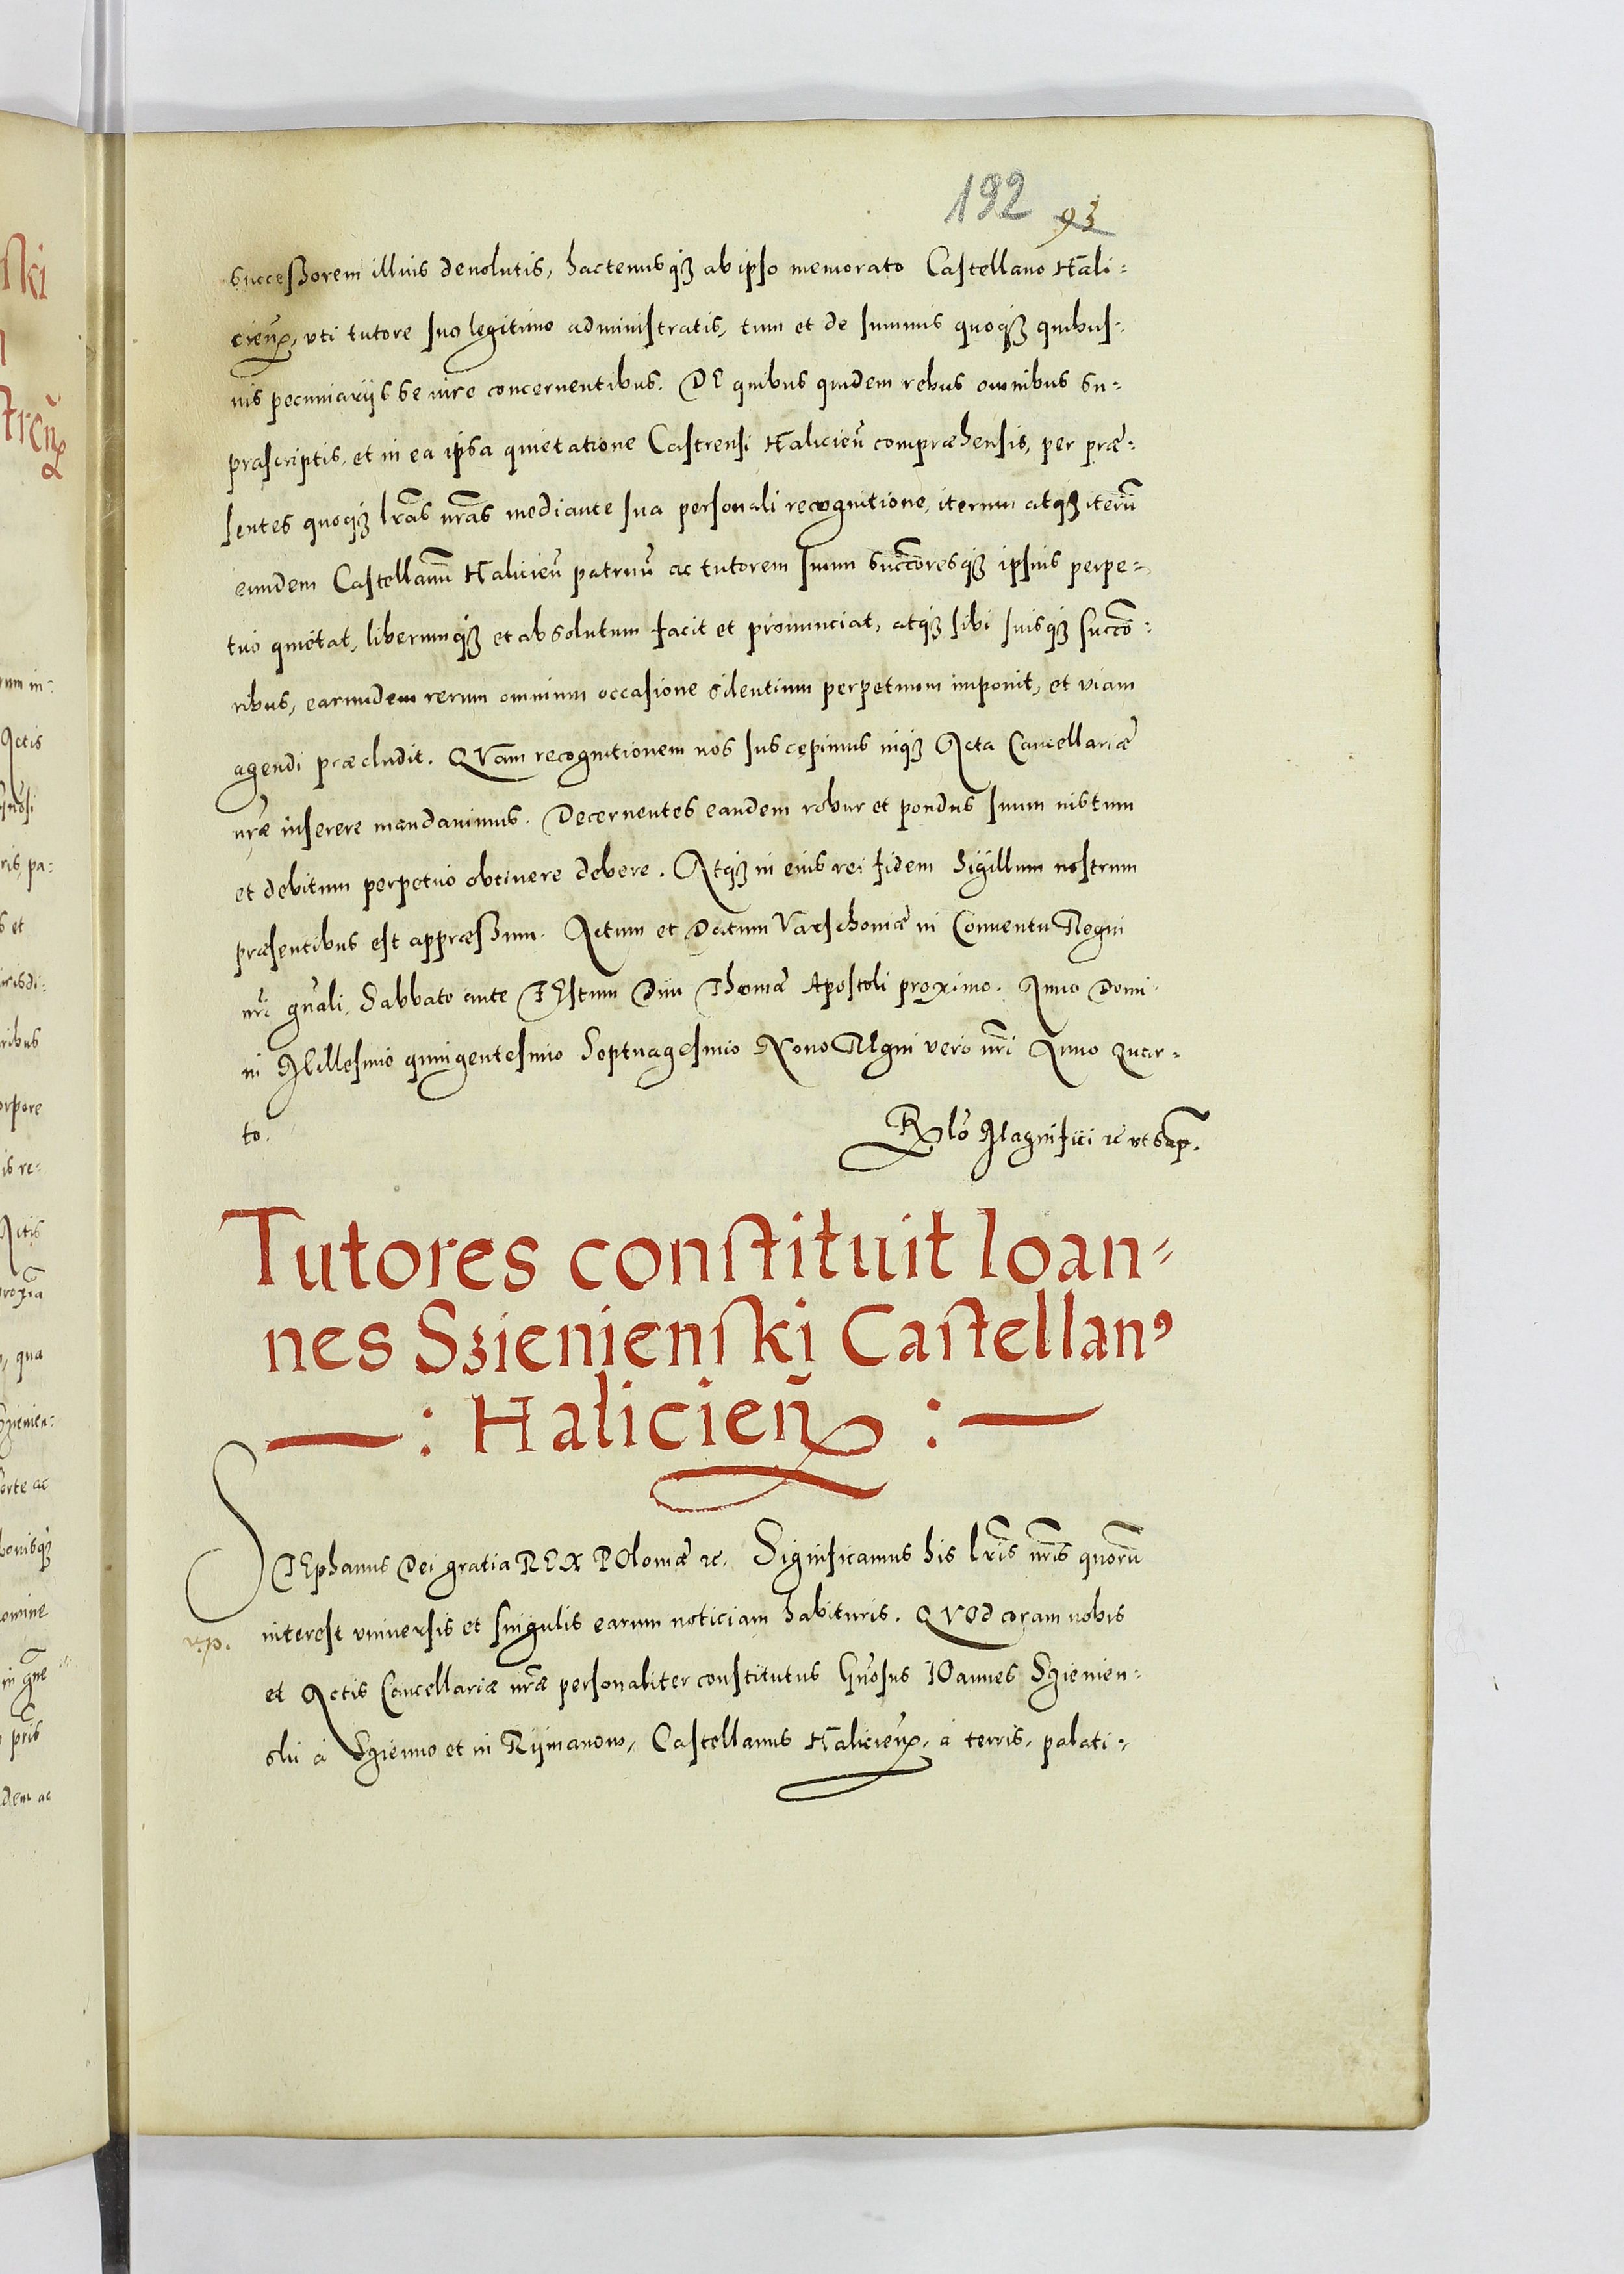 192 93
successorem illius devolutis, hactenusq₃ ab ipso memorato Castellano Hali=
cieñ, uti tutore suo legitimo administratis, tum et de summis quoq₃ quibus=
uis pecuniariis se iure concernentibus. DE quibus quidem rebus omnibus su=
prascriptis, et in ea ipsa quietatione Castrensi Halicieñ compræhensis, per præ=
sentes quoq₃ lr̃as nr̃as mediante sua personali recognitione, iterum atq₃ iterũ
eundem Castellanũ Halicieñ patruũ ac tutorem suum succ̃oresq₃ ipsius perpe=
tuo quietat, liberumq₃ et absolutum facit et pronunciat, atq₃ sibi suisq₃ succõ=
ribus, earumdem rerum omnium occasione silentium perpetuum imponit, et viam
agendi præcludit. QVam recognitionem nos suscepimus inq₃ Acta Cancellariæ
nr̃æ inserere mandauimus. Decernentes eandem robur et pondus suum iustum
et debitum perpetuo obtinere debere. Atq₃ in eius rei fidem Sigillum nostrum
præsentibus est appræssum. Actum et Datum Varschouiæ in Conuentu Regni
nr̃i gn̄ali, Sabbato ante FEstum Diui Thomæ Apostoli proximo. Anno Domi=
ni Millesimo quingentesimo Septuagesimo Nono REgni vero nr̃i Anno Quar=
to.
Rl̃o Magnifici ꝛc̃ ut sap̃.
Tutores constituit Ioan=
nes Szienienski Castellanꝰ
: Halicieñ :
STEphanus Dei gratia REX POloniæ ꝛc. Significamus his lr̃is nr̃is quorũ
interest vniuersis et singulis earum noticiam habituris. QVOd coram nobis
et Actis Cancellariæ nr̃æ personaliter constitutus Gñosus IOannes Szienien=
ski à Szienno et in Rijmanow, Castellanus Halicieñ, à terris, palati=